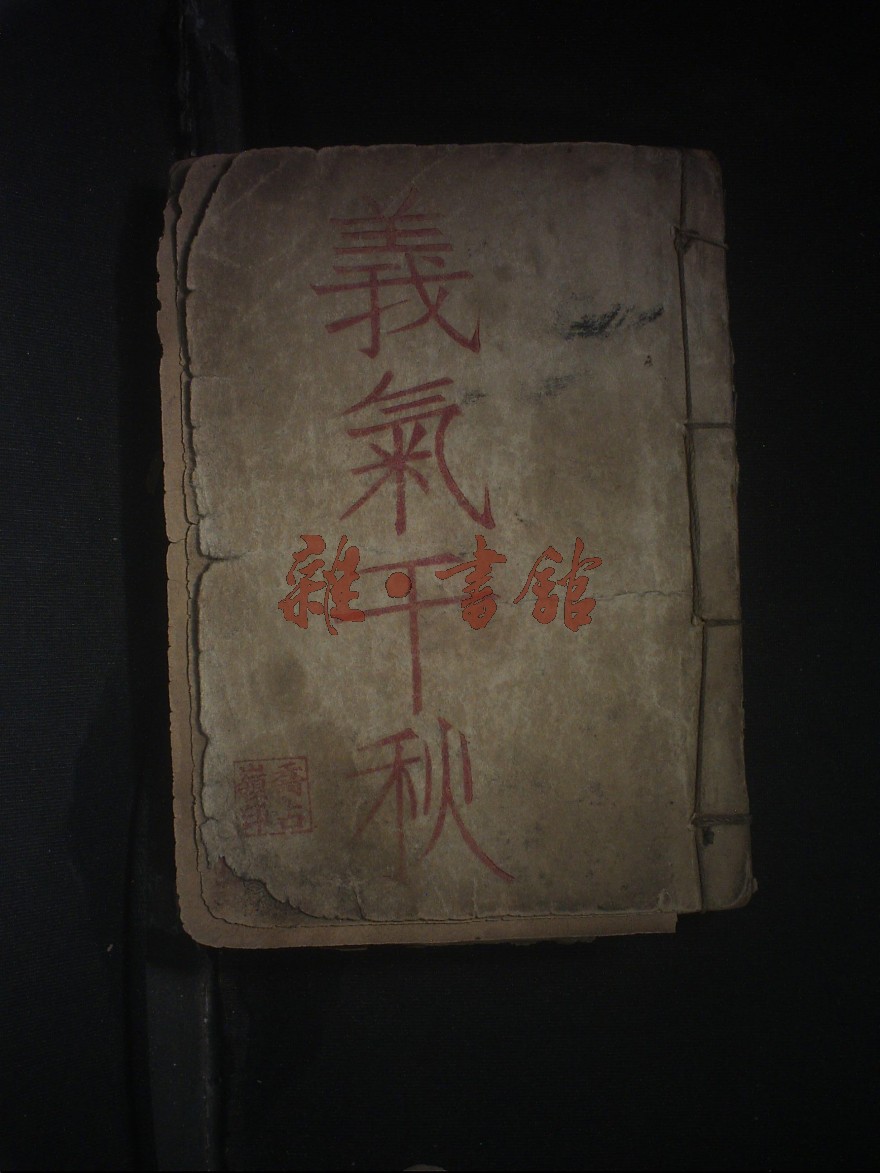 義氣千秋
雜·書館